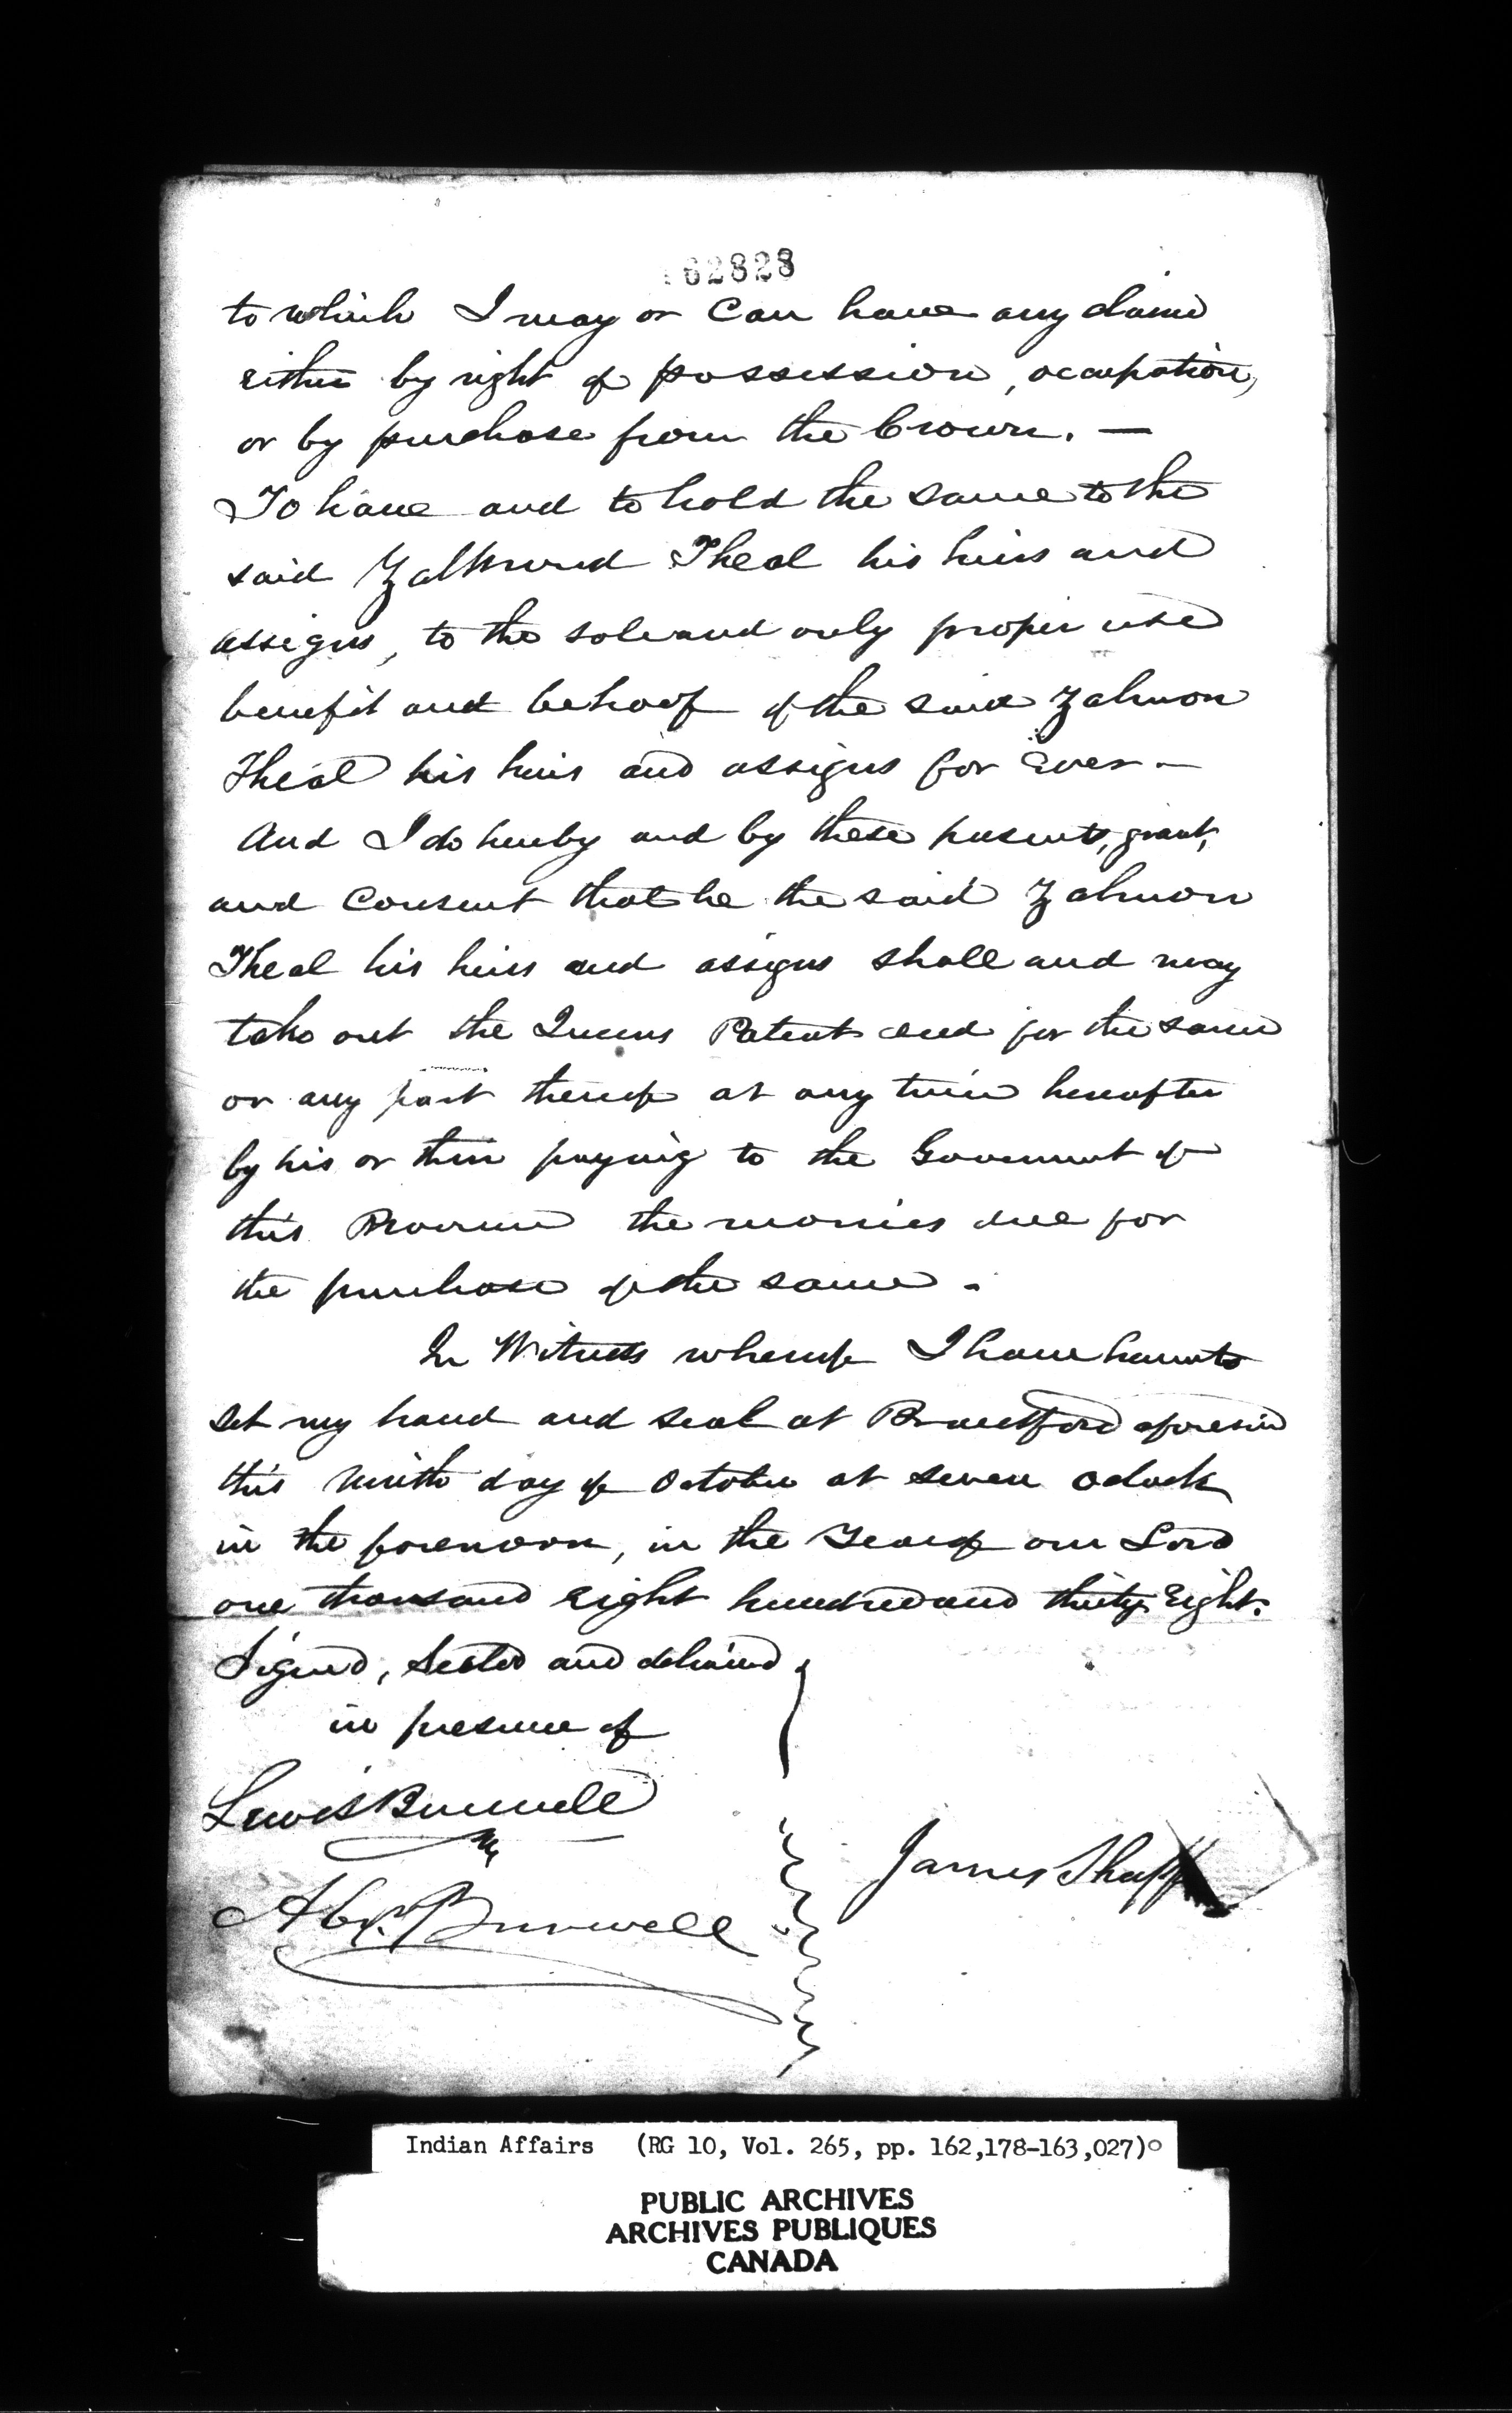 162828
to which I may or Can have any claim
either by right of possession, occupation,
or by purchase from the Crown. —
To have and to hold the same to the
said Zalmond Theal his heirs and
assigns, to the sole and only proper use
benefit and behoof of the said Zalmon
Theal his heirs and assigns for Ever —
And I do hereby and by these presents, grant,
and Consent that he the said Zalmon
Theal his heirs and assigns shall and may
take out the Queens Patent deed for the same
or any part thereof at any time hereafter
by his or their paying to the Government of
this Province the monies due for
the purchase of the same.
In Witness whereof I have hereunto
set my hand and seal at Brantford aforesaid
this Ninth day of October at seven oclock
in the forenoon, in the Year of our Lord
one thousand eight hundred and thirty Eight.
Signed, Sealed and delivered
in presence of
Lewis Burwell
Abrm. Burwell
James
Indian Affairs (RG 10, Vol. 265, pp. 162,178-163,027)
PUBLIC ARCHIVES
ARCHIVES PUBLIQUES
CANADA